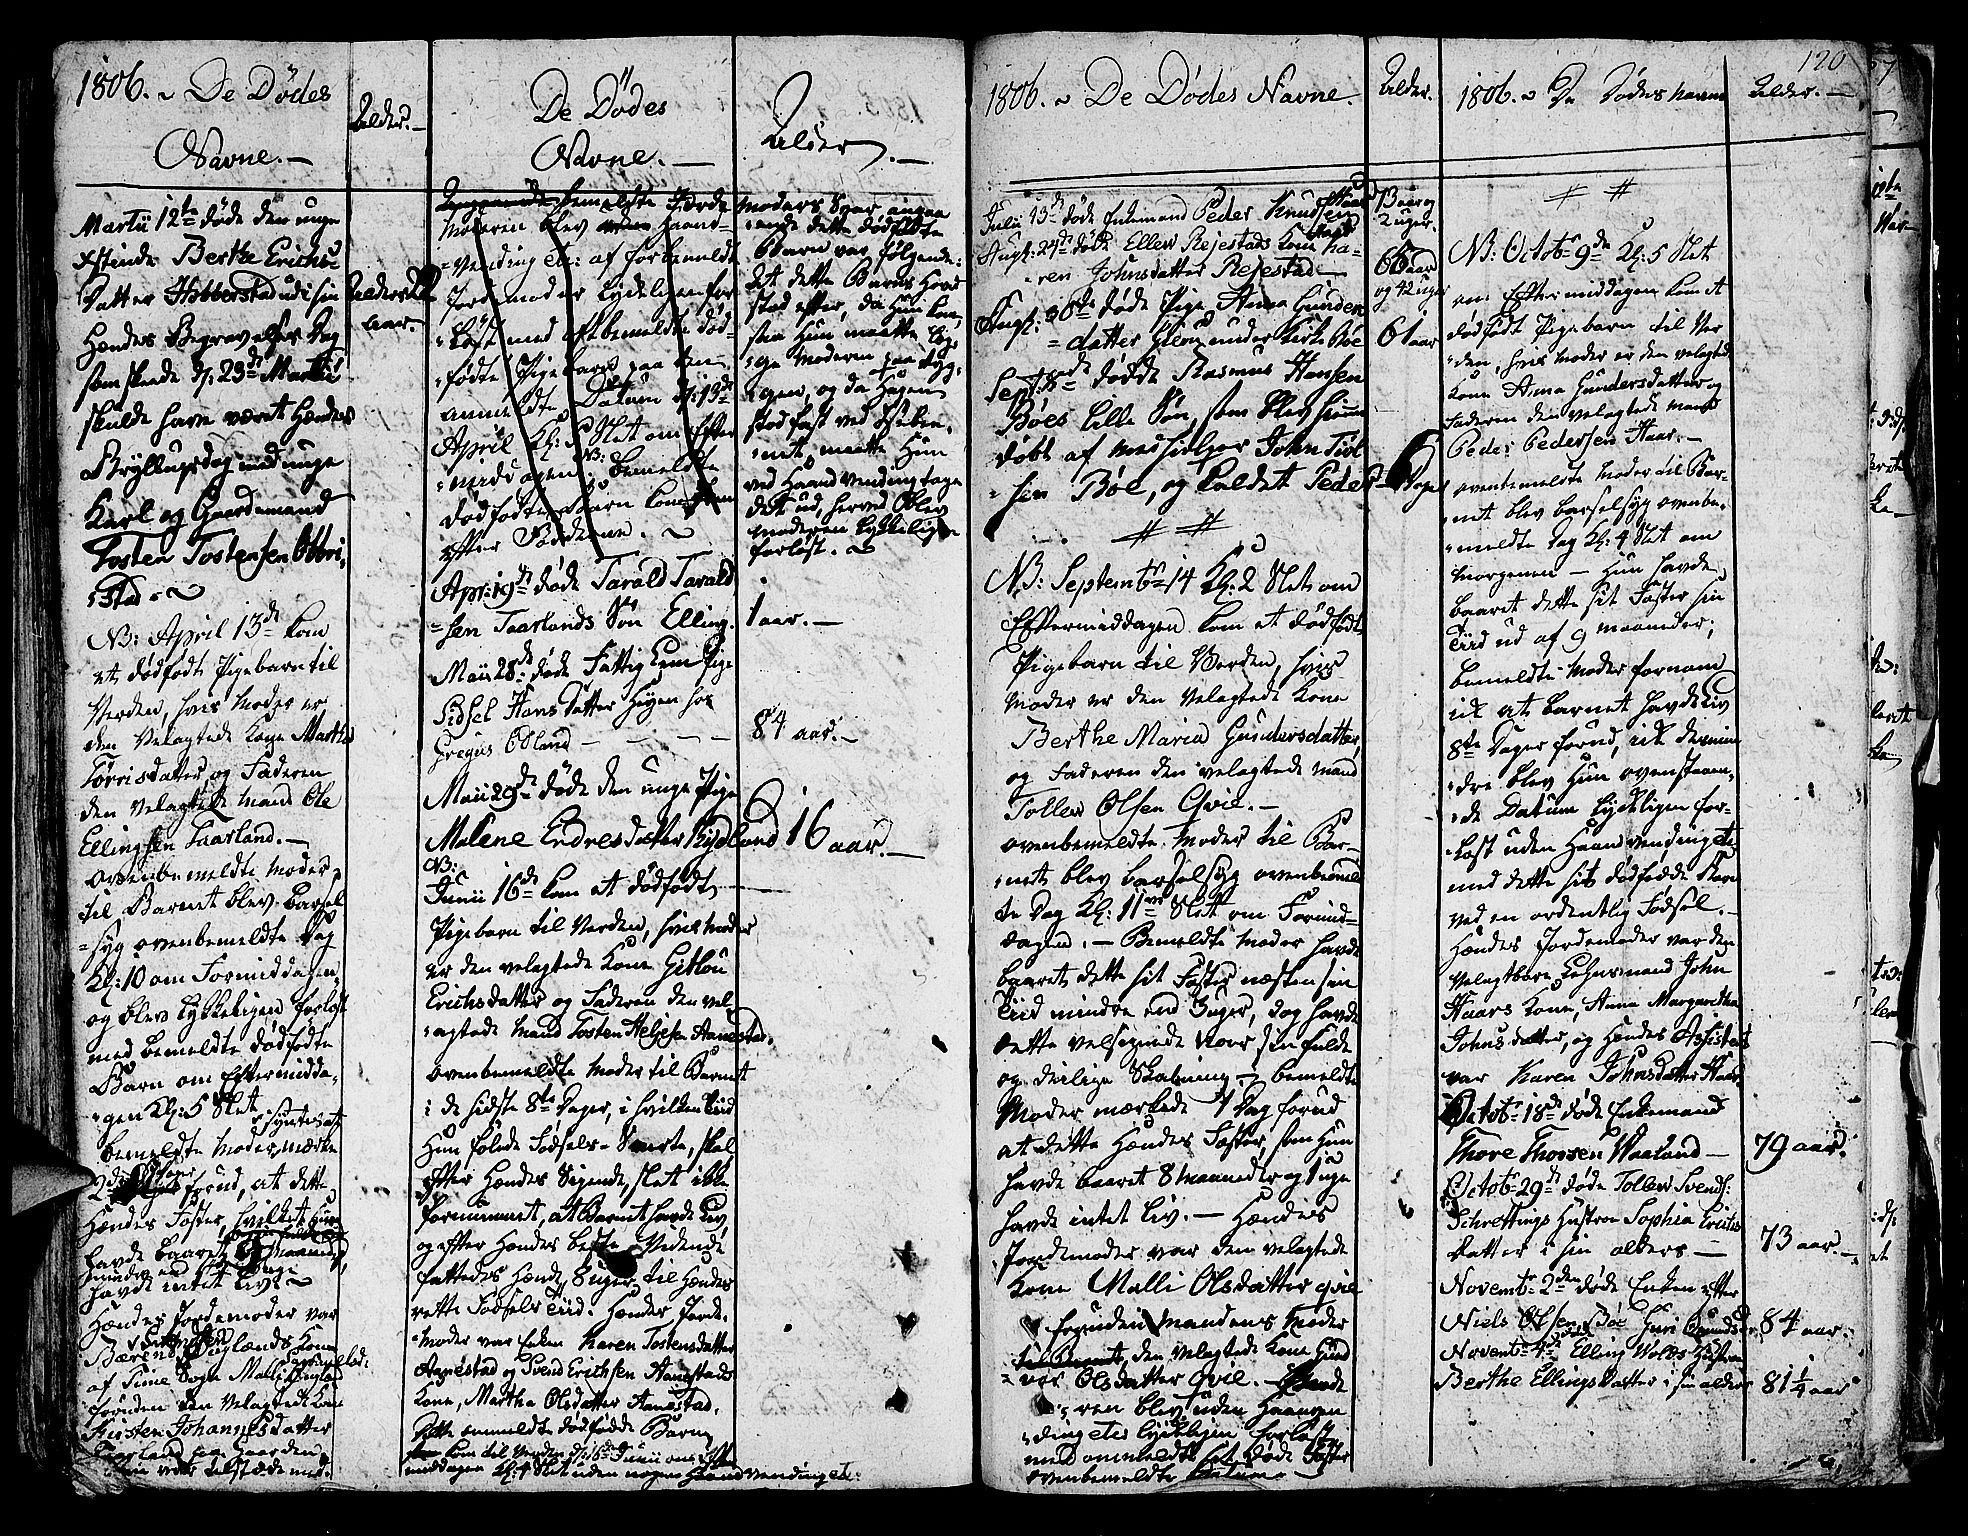 1806. ~ De Dødes
Navne. —
Alder. —
Martii 12te døde den unge
Qvinde Berthe Erichs
Datter Hobberstad udi sin
Hændes Begravelses Dag
som skeede d: 23de Martii
skulde have været Hændes
Bryllupsdag med unge
Karl og Gaardmand
Tosten Tostensen Obbri,
stad. ~
Alders
aar. —
NB: April 13de kom
et dødfødt Pigebarn til
Verden, hvis Moder er
den Velagtede Kone Martha
Tørrisdatter, og Faderen
den Velagtede Mand Ole
Ellingsen Taarland. —
ovenbemeldte Moder
til Barnet blev Barsel
syg ovenbemeldte Dag
Kl: 10 om Formiddagen,
og blev Lykkeligen forløst
med bemeldte dødfødte
Barn om Eftermidda,
gen Kl: 5 Slet
bemeldte Moder mærke
2de forud, at dette
Hændes Foster, hvilket Hun
havde baaret
havde intet Liv. ~
Hændes Jordemoder var
Kone
af Sime Sogn Malli
foruden den Velagtede Kone
Kirsten Johannesdatter
Taarland paa Gaarden
som var tilstæde med.
De Dødes
Navne. —
Alder. —
bemeldte Jorde
Moderen blev Haand
vending etc: af forbemeldte
Jordemoder Lykkeligen for
løst med
fødte Pigebarn paa den
anmeldte Datum d: 13de
April Kl: 5 Slet om Efter
middagen. NB: bemeldte
dødfødte Barn kom
efter Fødderne. ~
Moders Svar angaa
ende dette dødfødte
Barn var følgende:
at dette Barns Hoved
stod efter, da Hun kom,
saa Hun maatte Læg,
ge Moderen paa Ryg,
gen, og da Hagen
stod fast ved Skeben,
net, maatte Hun
ved Haandvending tage
det ud, herved blev
Moderen Lykkeligen
forløst. ~
Apr: 19de døde Tarald Tarald
sen Taarlands Søn Elling.
1 aar. —
Maii 28de døde Fattig Lem Pige
Sidsel Hans Datter Høyen hos
Gregus Ødland — — —
84 aar. —
Maii 29de døde den unge Pige
Malene Endresdatter Rydland
16 aar. —
NB:
Junii 16de kom et dødfødt
Pigebarn til Verden, hvis Moder
er den velagtede Kone Gitlou
Erichsdatter og Faderen den vel,
agtede Mand Tosten Heljesen Aanestad.
ovenbemeldte Moder til Barnet
i de sidste 8te Dager, i hvilken Tiid
Hun følede Fødsels-Smerte, skal
efter Hændes Sigende, slet ikke
fornummet, at Barnet havde Liv,
og efter Hændes beste Vidende
fattedes Hænde 8 uger til Hændes
rette Fødsels Tiid. Hændes Jorde,
moder var Enken Karen Tostensdatter
Aanestad og Svend Erichsen Aanestads
Kone, Martha Olsdatter Aanestad.
Dette anmeldte dødfødde Barn
kom til Verden d: 16de Junii om Efter
middagen Kl: 4 Slet uden nogen Haandvending etc:
1806. ~ De Dødes Navne.
Alder.
Julii 13de døde Enkemand Peder Knudsen Haar
73 aar og
2 uger.
Augst: 24de døde Eller Rejestads Kone Ka,
ren Johnsdatter Rejestad —
66 aar
og 42 uger
Augst: 30de døde Pige Anna Gunders
datter under Kirke Bøe
61 aar
Sept: 8de døde Rasmus Hansen
Bøes lille Søn, som blev hiemme
døbt af Medhielper John Tiøl
sen Bøe, og kaldet Peder
6 Dage
NB: Septembr 14 Kl: 2 Slet om
Eftermiddagen kom et dødfødt
Pigebarn til Verden, hvis
Moder er den velagtede Kone
Berthe Maria Gundersdatter,
og Faderen den velagtede Mand
Toller Olsen Qvie. —
ovenbemeldte Moder til Bar,
net blev Barselsyg ovenbemeld
te Dag Kl: 11ve Slet om Formid,
dagen. — Bemeldte Moder havde
baaret dette sit Foster næsten sin
Tiid mindre end 3 uger, dog havde
dette velsignede Noor sin fulde
og deilige Skabning. — bemeldte
Moder mærkede 1 Dag forud
at dette Hændes Foster, som Hun
havde baaret 8 Maaneder og 1 uge
havde intet Liv. — Hændes
Jordemoder var den velagtede
Kone Malli Olsdatter Qvie
foruden Mandens Moder
den velagtede Kone Gund
vor Olsdatter Qvie. —
ren blev uden Haandven
ding etc Lykkeligen forløst
med anmeldte sit døde Foster
ovenbemeldte Datum —
120
1806. ~ De Dødes Navne
Alder. —
NB: Octobr 9de Kl: 5 Slet
om Eftermiddagen kom et
dødfødt Pigebarn til Ver
den, hvis Moder er den velagtede
Kone Anna Gundersdatter og
Faderen den velagtede Mand
Peder Pedersen Haar. —
ovenbemeldte Moder til Bar,
net blev barselsyg ovenbe,
meldte Dag Kl: 4 Slet om
Morgenen — Hun havde
baaret dette sit Foster sin
Tiid ud af 9 Maaneder;
bemeldte Moder fornam
ick at Barnet havde Liv
8te Dager forud, ick desmin
dre blev Hun ovenstaaen,
de Datum Lykkeligen for,
løst uden Haandvending etc:
med dette sit dødfødde Barn
ved en ordentlig Fødsel. —
Hændes Jordemoder var den
Velagtbare Lehnsmand John
Haars Kone, Anna Margaretha
Johnsdatter, og Hændes Assistent
var Karen Johnsdatter Haar.
Octobr 18de døde Enkemand
Thore Thorsen Waaland —
79 aar.
Octobr 29de døde Toller Svends:
Schrettings Hustroe Sophia Erichs
Datter i sin alders —
73 aar. —
Novembr 2den døde Enken efter
Niels Olsen Bøe Guri
84 aar.
Novembr 4de Elling Wolds Hustroe
Berthe Ellings Datter i sin alders
81 1/4 aar